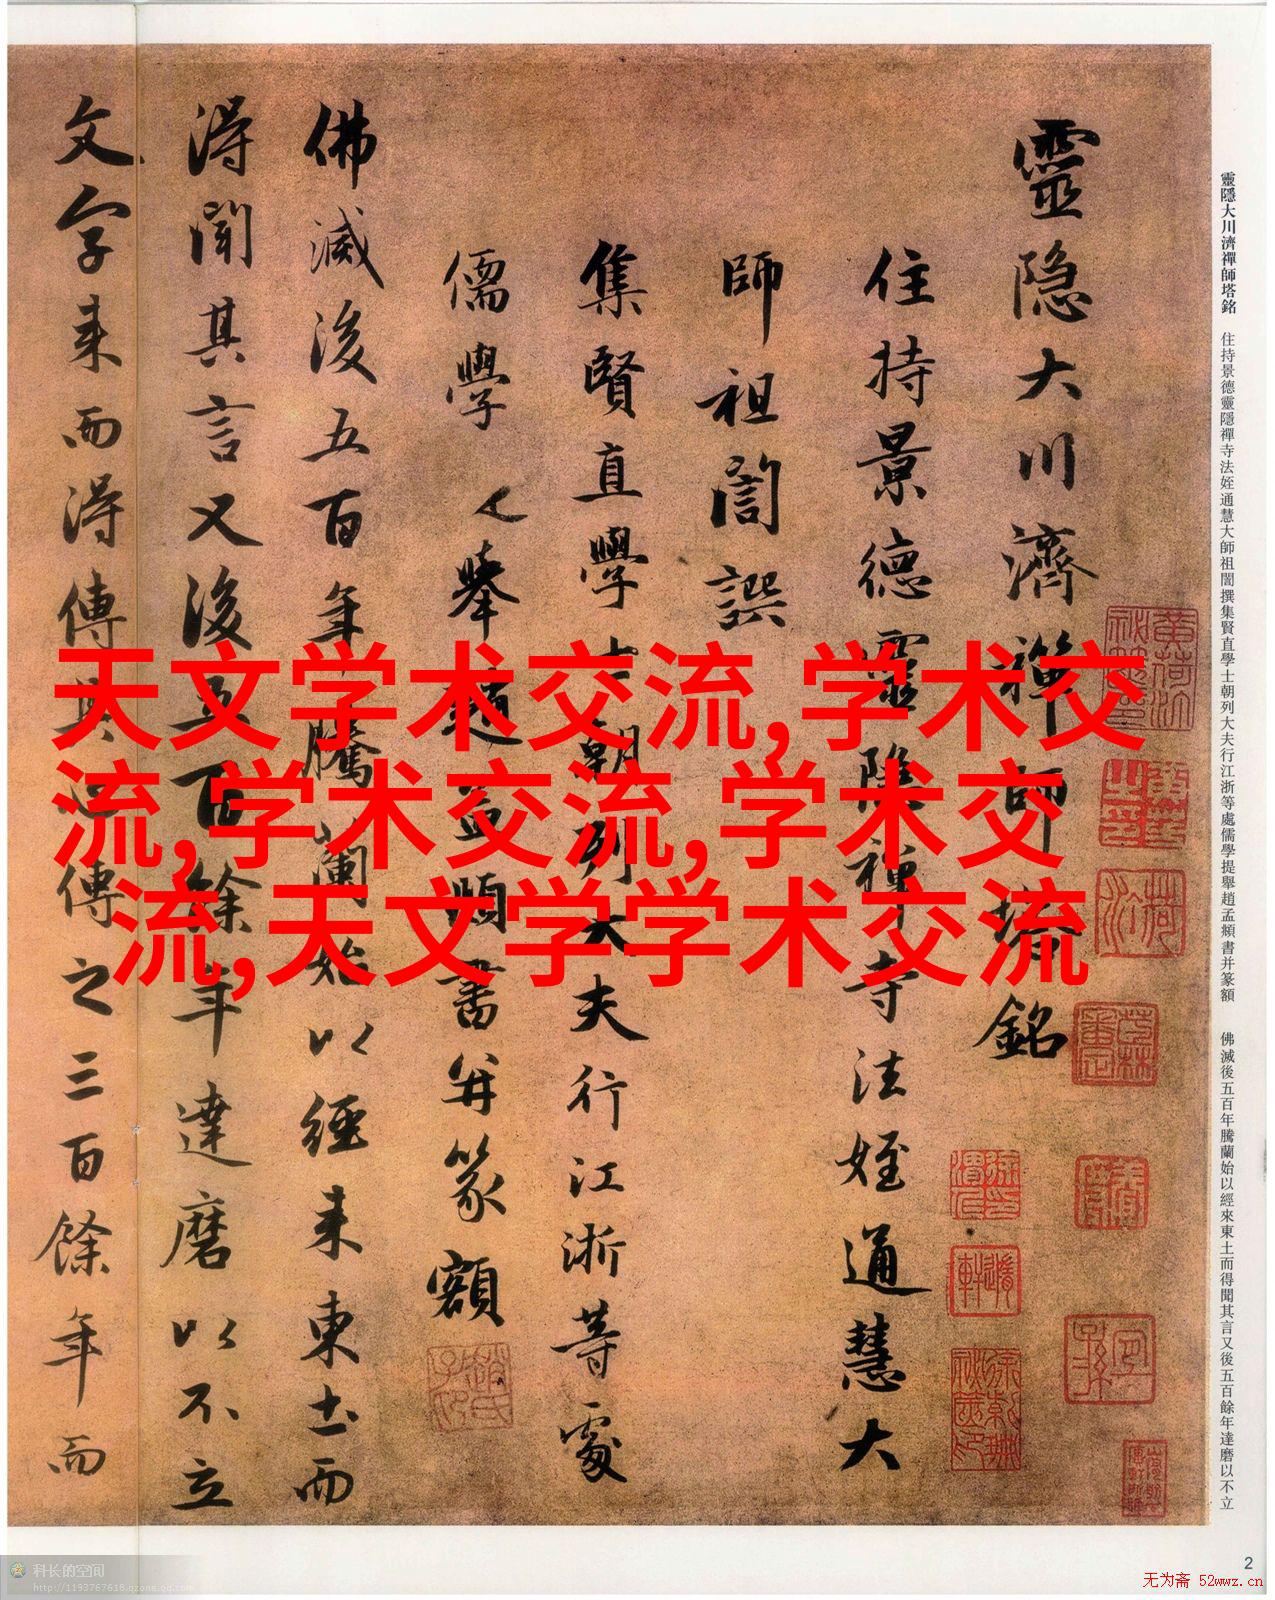 靈隐大川濟禪師塔銘
住持景德靈隐禅寺法姪通慧大
師祖誾譔
集賢直學士朝列大夫行江浙等處
儒學提舉趙孟頫書并篆額
佛滅後五百年騰蘭始以經来東土而
得聞其言又後五百餘年達磨以不立
文字来而得傳其傳之三百餘年而
靈隱大川濟禪師塔銘 住持景德靈隱禪寺法姪通慧大師祖誾撰集賢直學士朝列大夫行江浙等處儒學提舉趙孟頫書并篆額 佛滅後五百年騰蘭始以經來東土而得聞其言又後五百餘年達磨以不立
天文学术交流,学术交
流,学术交流,学术交
流,天文学学术交流
2
科长的空间
http://1193767618.qzone.qq.com
无为斋 52wwz.cn